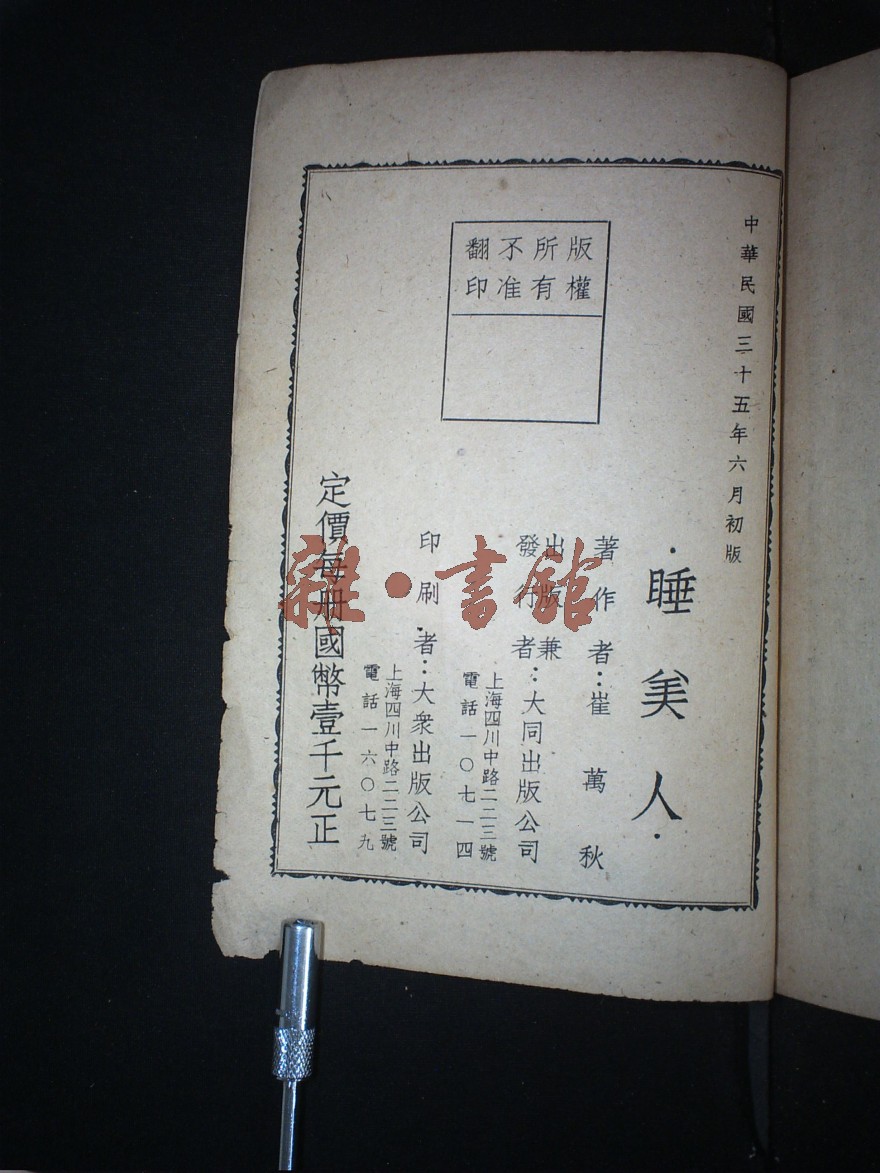 中華民國三十五年六月初版
·睡美人·
著作者：崔萬秋
出版兼
發行者：大同出版公司
上海四川中路二二三號
電話一〇七一四
印刷者：大衆出版公司
上海四川中路二二三號
電話一六〇七九
定價每册國幣壹千元正
版權
所有
不准
翻印
雜·書館